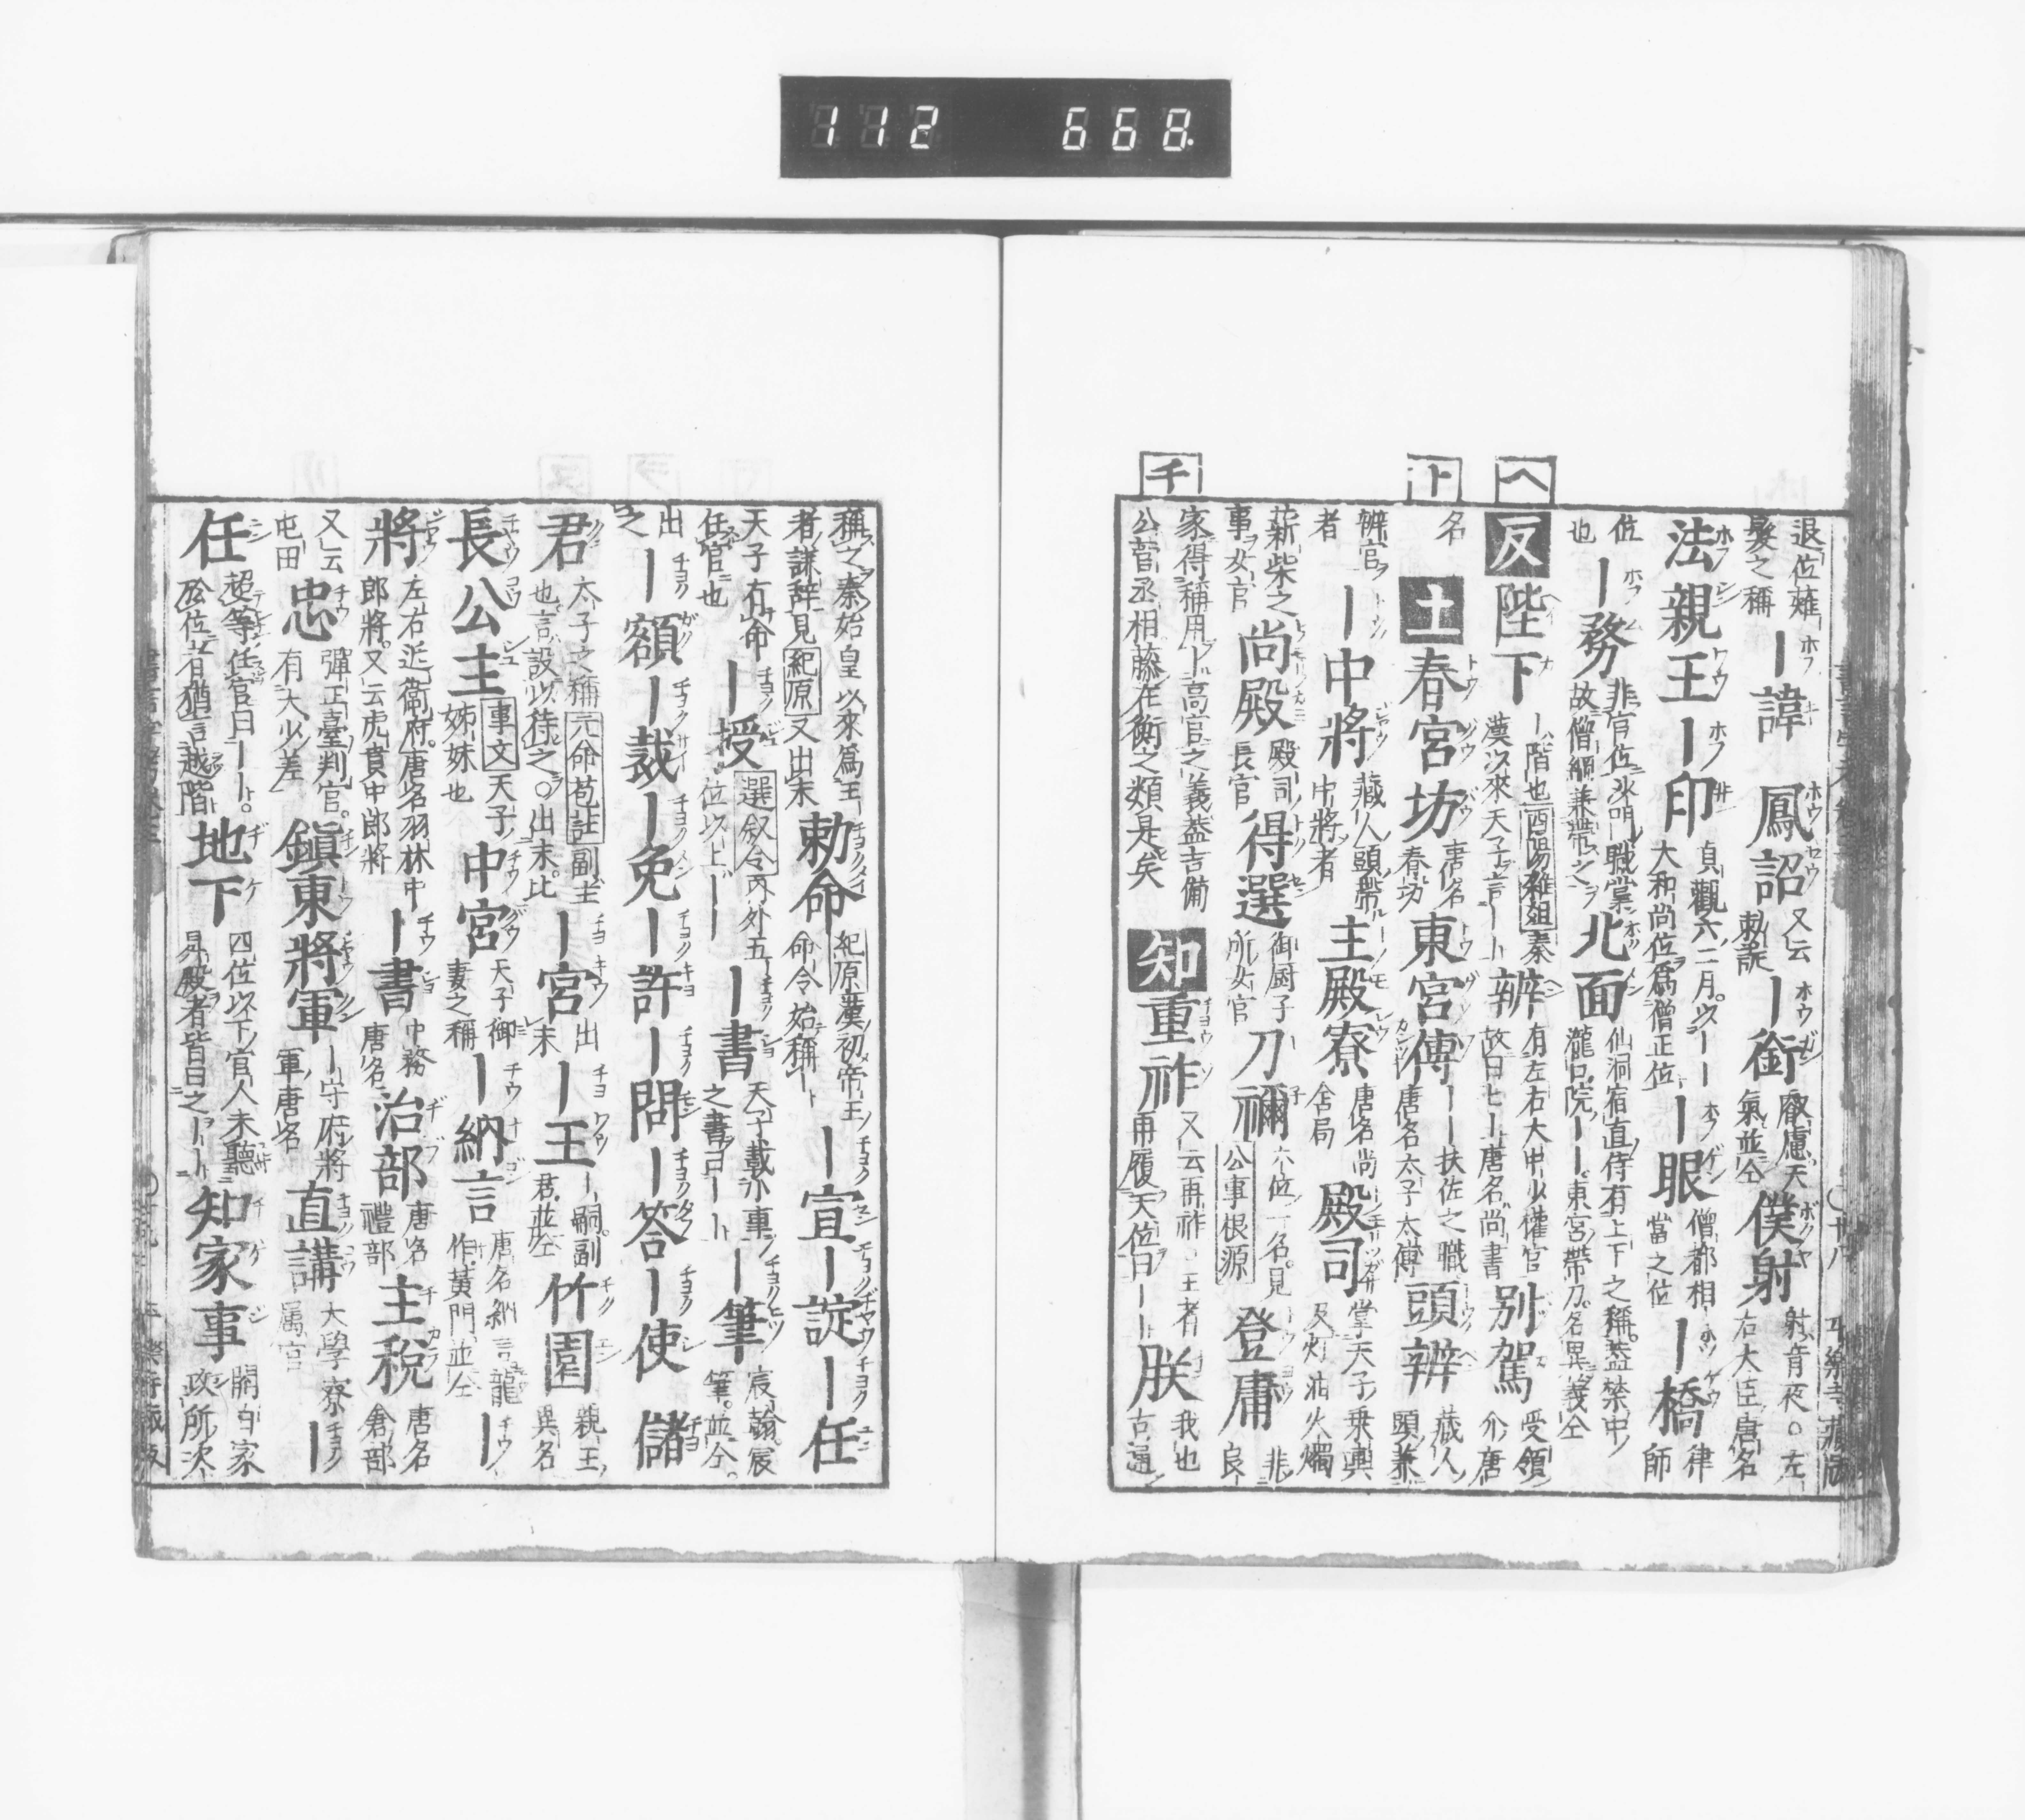 112 668.
ヘ
ト
チ
退位薙髮之稱 ｜諱 鳳詔 又云勅諚 ｜銜 叡慮天氣並仝 僕射 射肯夜。左右大臣唐名
法親王 ｜印 貞觀六二月以｜｜大和尚位爲僧正位 ｜眼 僧都相當之位 ｜橋 律師
位也 ｜務 非官位沙門職掌故僧綱兼帶之 北面 仙洞宿直侍有上下之稱。蓋禁中瀧口院｜｜。東宮帶刀名異義仝
反 陛下 ｜階也酉陽雜俎秦漢以來天子言｜｜ 辨 有左右大中少權官故曰七｜唐名尚書 別駕 受領介唐
名 土 春宮坊 唐名春坊 東宮傅 ｜｜扶佐之職唐名太子太傅 頭辨 藏人頭兼
辨官者 ｜中將 藏人頭帶中將者 主殿寮 唐名尚舍局 殿司 掌天子乘輿及灯油火燭
薪柴之事女官 尚殿 殿司長官 得選 御厨子所女官 刀禰 六位一名。見公事根源 登庸 非良
家得稱用｜高官之義蓋吉備公菅丞相藤在衡之類是矣 知 重祚 又云再祚王者再履天位曰｜｜ 朕 我也古通
稱之秦始皇以來爲王者謙辭見紀原又出末 勅命 紀原漢初帝王命令始稱｜ ｜宣 ｜諚 ｜任
天子有命任官也 ｜授 選叙令內外五位以上｜｜ ｜書 天子載亦事之書曰｜｜ ｜筆 宸翰。宸筆。並仝。
出之 ｜額 ｜裁 ｜免 ｜許 ｜問 ｜答 ｜使 儲
君 太子之稱元命苞註副主也言設以待之。○出末。比 ｜宮 出末 ｜王 ｜嗣。副君。並仝 竹園 親王異名
長公主 事文天子姉妹也 中宮 天子御妻之稱 ｜納言 唐名納言龍作。黃門並仝 ｜
將 左右近衞府。唐名羽林中郎將。又云虎賁中郎將 ｜書 中務唐名 治部 唐名禮部 主稅 唐名倉部
又云屯田 忠 彈正臺判官。有大少差 鎭東將軍 ｜守府將軍唐名 直講 大學寮属官 ｜
任 超等任官曰｜｜。 地下 四位以下官人未聽昇殿者皆曰之｜｜ 知家事 關白家政所次